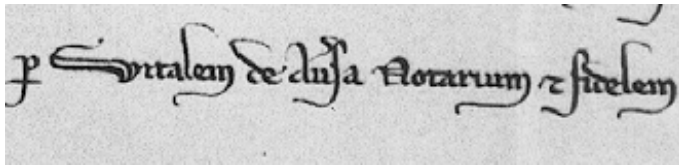 ꝑ Vitalem de Au͛sa Notarium ⁊ fidelem